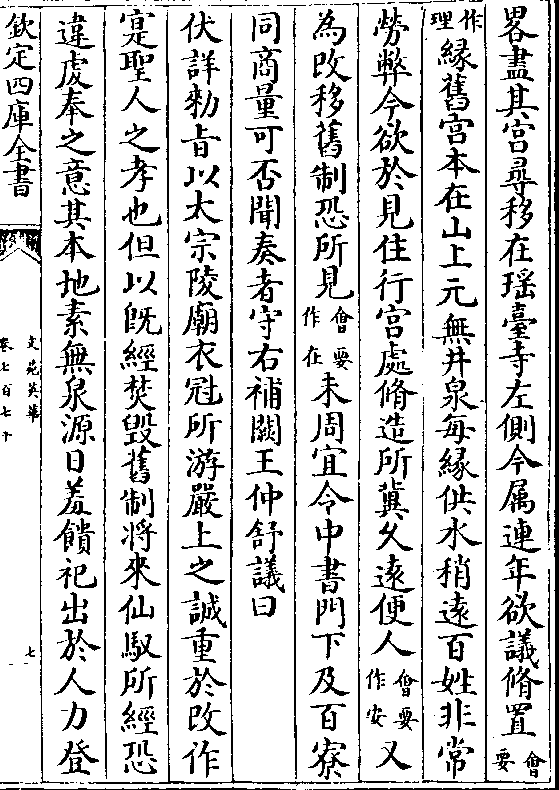 畧盡其宫尋移在瑶臺寺左側今属連年欲議脩置會要
作理縁舊宫本在山上元無井泉每縁供水稍遠百姓非常
勞弊今欲於見住行宫處脩造所兾久遠便人會要作安又
為改移舊制恐所見會要作在未周宜令中書門下及百寮
同商量可否聞奏者守右補闕王仲舒議曰
伏詳勑旨以太宗陵廟衣冠所游嚴上之誠重於改作
寔聖人之孝也但以既經焚毁舊制将來仙馭所經恐
違䖍奉之意其本地素無泉源日羞饋祀出於人力登
欽定四庫全書
文苑英華
卷七百七十
七